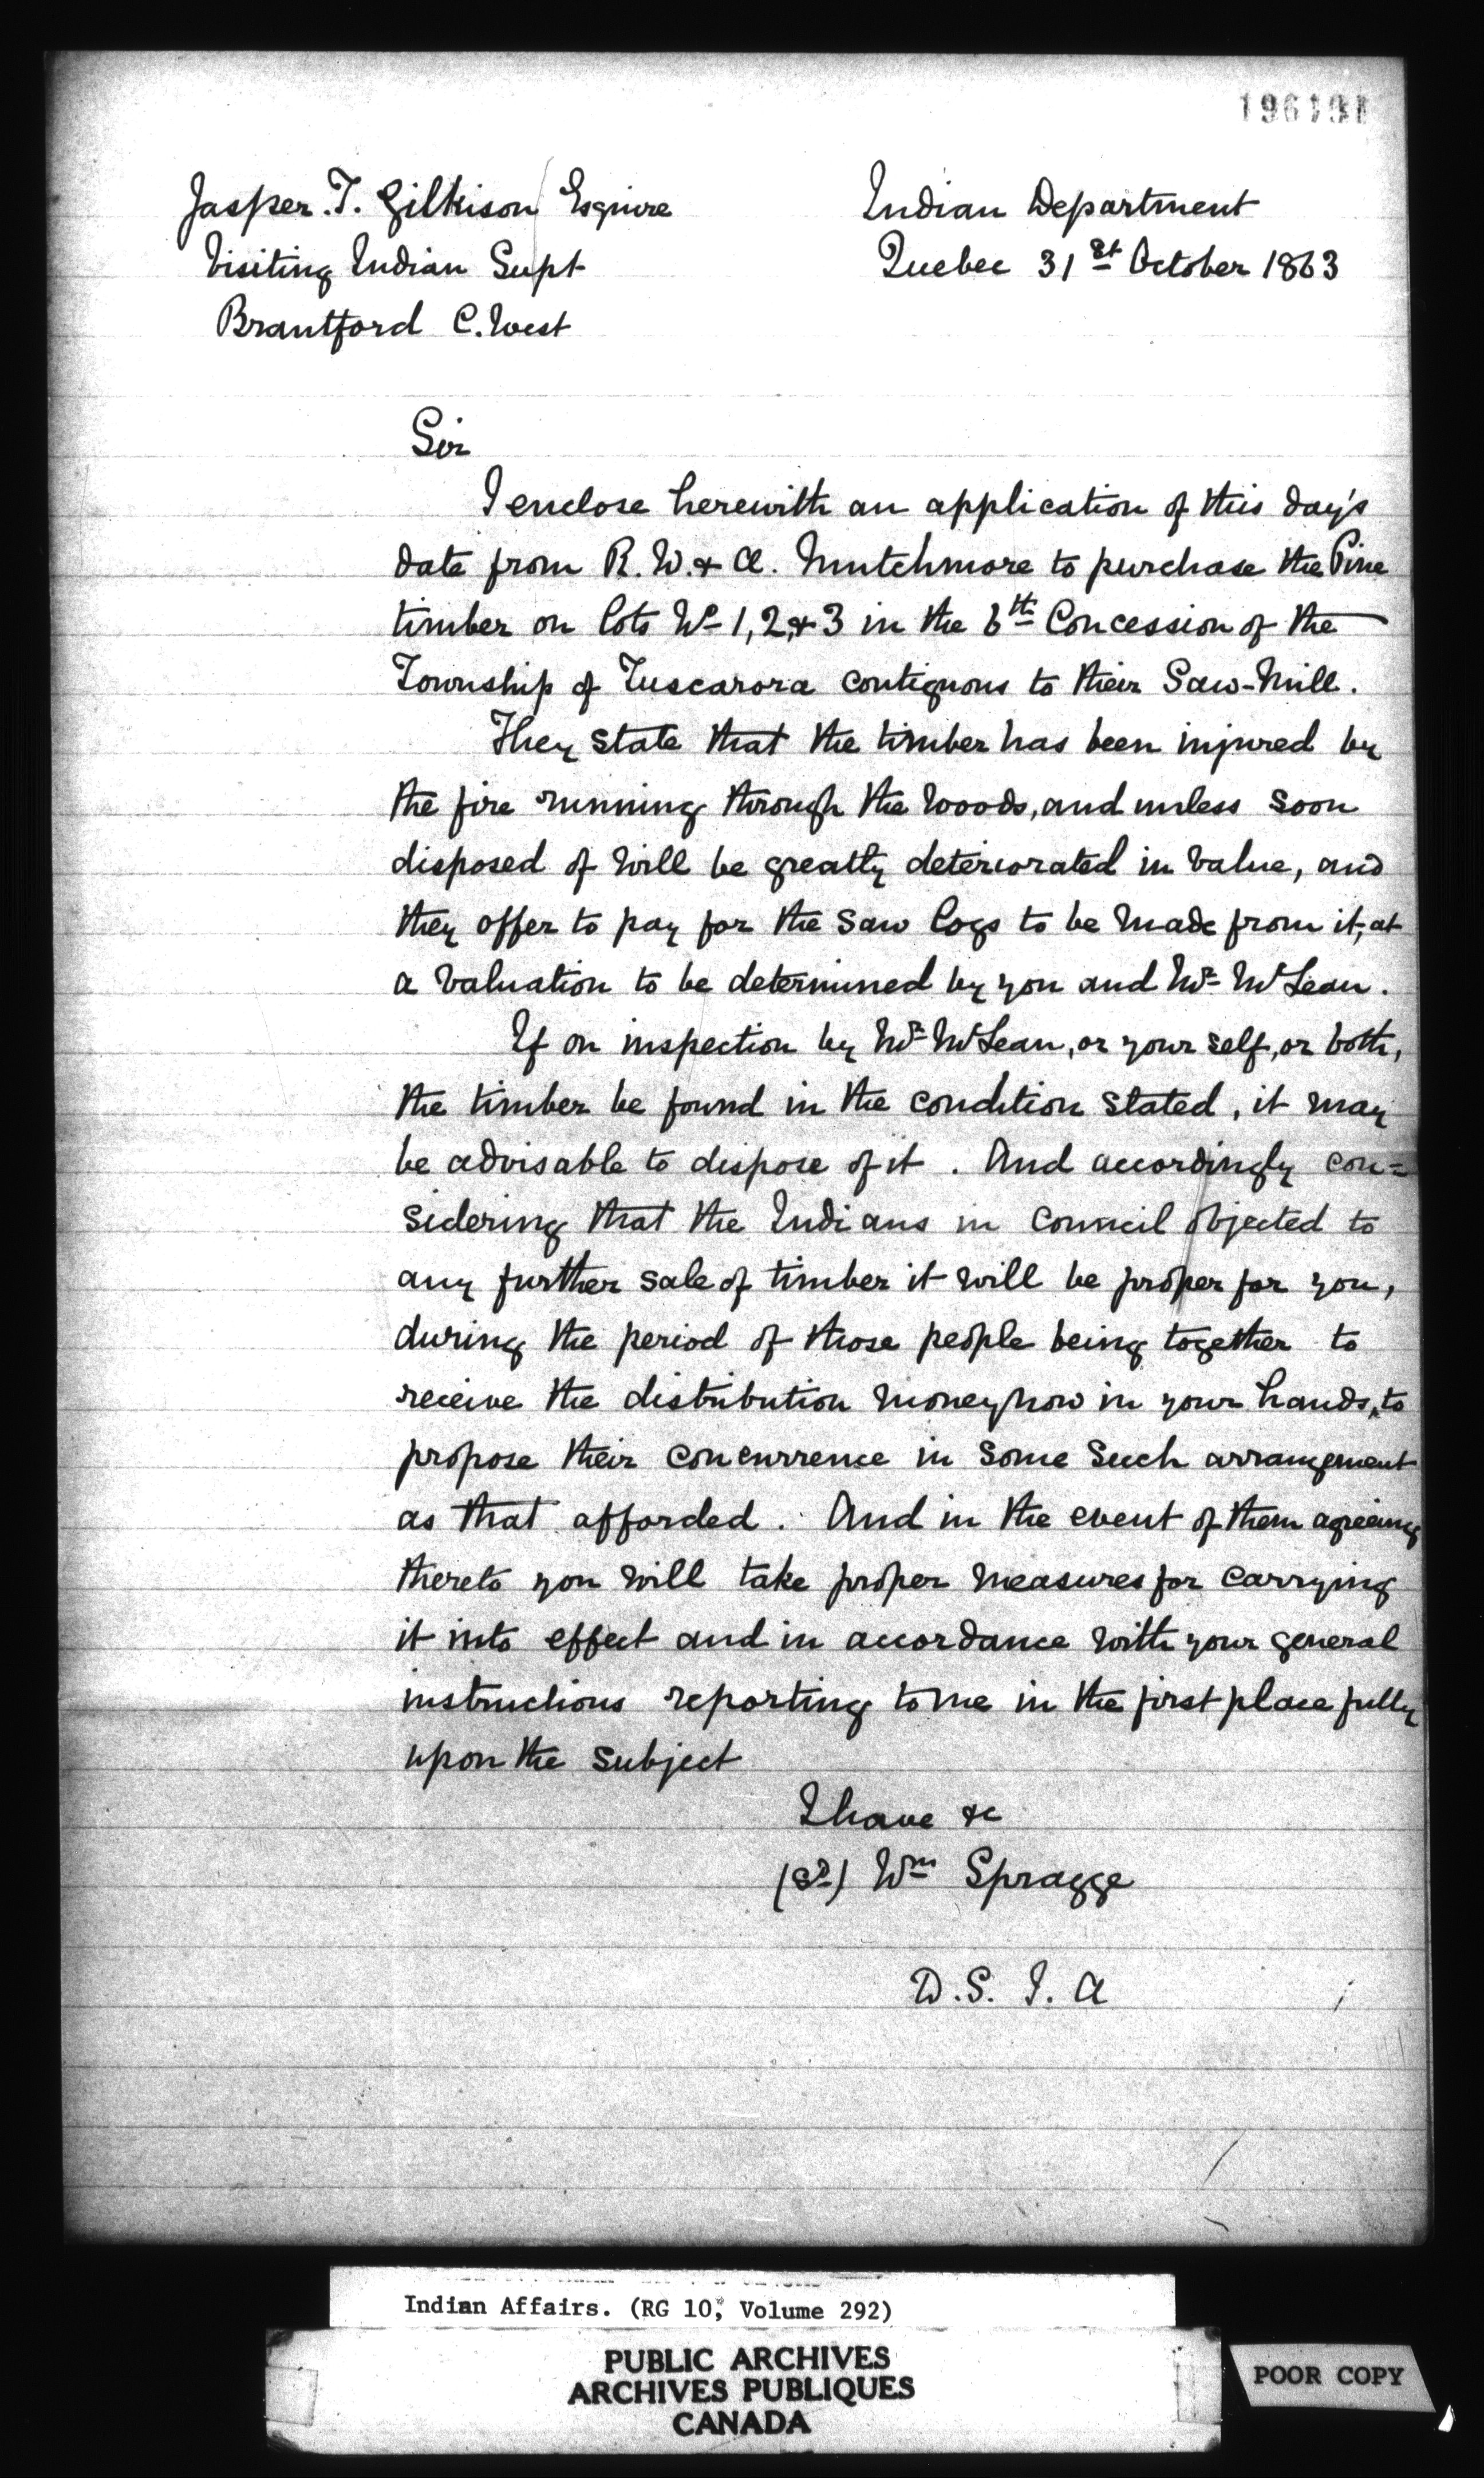 Jasper. T. Gilkison Esquire
Visiting Indian Supt
Brantford C. West
Indian Department
Quebec 31st October 1863
Sir
I enclose herewith an application of this day's
date from R. W. & A. Mutchmore to purchase the Pine
timber on lots No 1, 2, & 3 in the 6th Concession of the
Township of Tuscarora contiguous to their Saw-Mill.
They state that the timber has been injured by
the fire running through the woods, and unless soon
disposed of will be greatly deteriorated in value, and
they offer to pay for the saw logs to be made from it, at
a valuation to be determined by you and Mr McLean.
If on inspection by Mr McLean, or your self, or both,
the timber be found in the condition stated, it may
be advisable to dispose of it. And accordingly con=
sidering that the Indians in Council objected to
any further sale of timber it will be proper for you,
during the period of those people being together to
receive the distribution money now in your hands, to
propose their concurrence in some such arrangement
as that afforded. And in the event of them agreeing
thereto you will take proper measures for carrying
it into effect and in accordance with your general
instructions reporting to me in the first place fully
upon the subject
I have &c
(Sd) Wm Spragge
D. S. I. A
Indian Affairs. (RG 10, Volume 292)
PUBLIC ARCHIVES
ARCHIVES PUBLIQUES
CANADA
POOR COPY